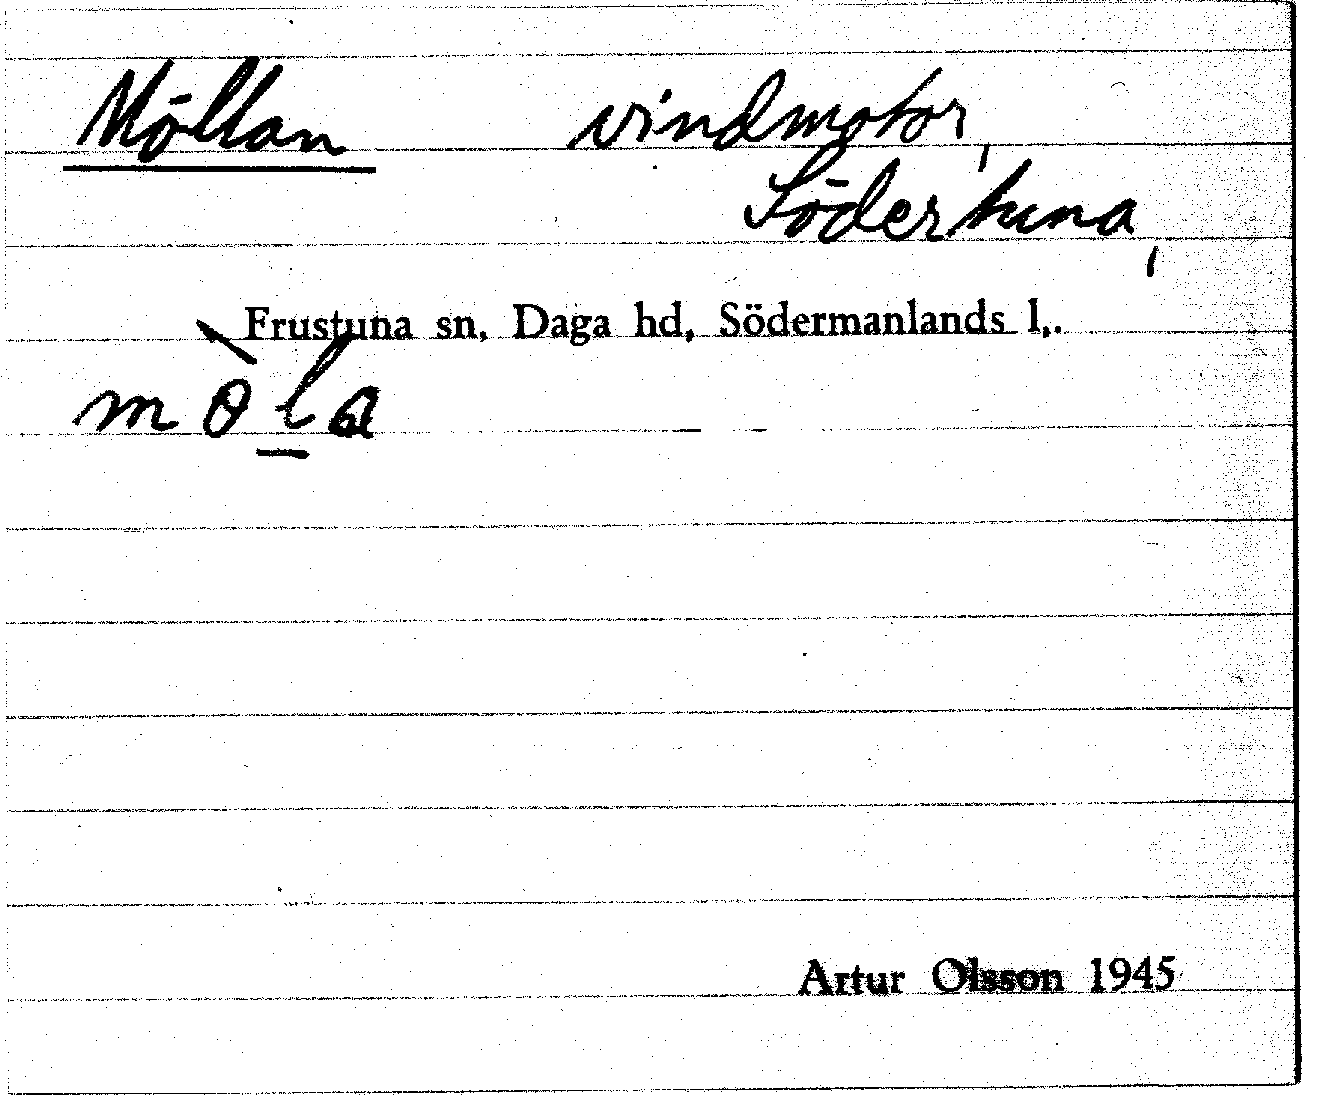 Möllan vindmotor,
Södertuna,
Frustuna sn, Daga hd, Södermanlands l,.
mòla
Artur Olsson 1945